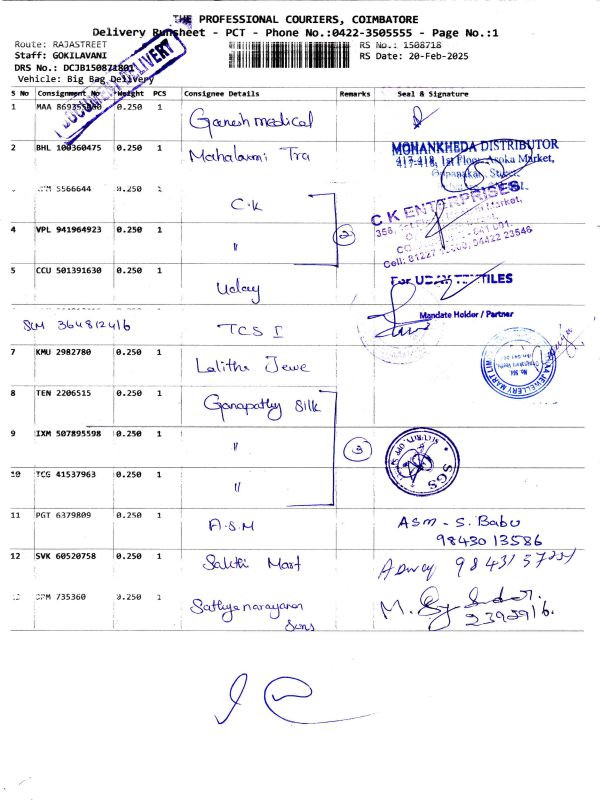 THE PROFESSIONAL COURIERS, COIMBATORE
Delivery Runsheet - PCT - Phone No.:0422-3505555 - Page No.:1
Route: RAJASTREET
RS No.: 1508718
Staff: GOKILAVANI
RS Date: 20-Feb-2025
DRS No.: DCJB150871801
Vehicle: Big Bag Delivery
DOCUMENT DELIVERY
S No Consignment No Weight PCS Consignee Details Remarks Seal & Signature
1 MAA 0.250 1 Ganesh medical
2 BHL 100360475 0.250 1 Mahalaxmi Tra
MOHANKHEDA DISTRIBUTOR
417-418, 1st Floor, Asoka Market,
5566644 0.250 1 C.K
C K ENTERPRISES
4 VPL 941964923 0.250 1 "
2
5 CCU 501391630 0.250 1 Uday
For UDAY TEXTILES
Mandate Holder / Partner
SLM 364812416 TCS I
7 KMU 2982780 0.250 1 Lalitha Jewe
JEWELLERY MART
8 TEN 2206515 0.250 1 Ganapathy Silk
9 IXM 507895598 0.250 1 "
3
SGS
10 TCG 41537963 0.250 1 "
11 PGT 6379809 0.250 1 A.S.M
ASM - S. Babu
98430 13586
12 SVK 60520758 0.250 1 Mart
735360 0.250 1 Sathyanarayanan
Sons
M.